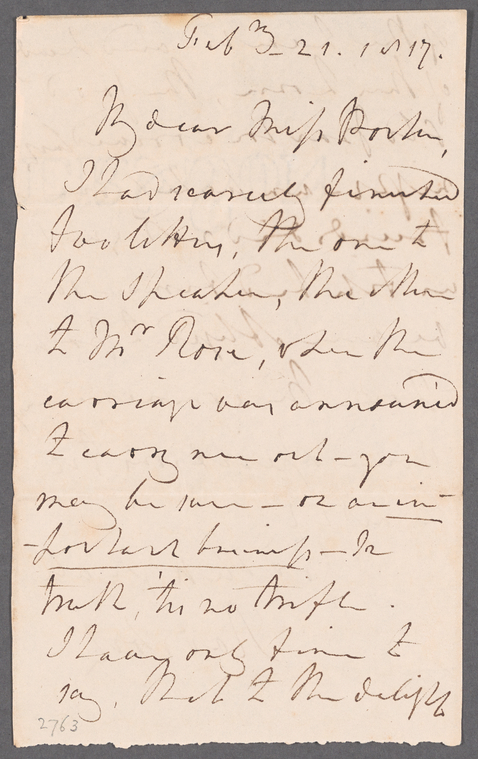 Feby 21. 1817.
My dear Miss Porter,
I had scarcely finished
two letters, the one to
the Speaker, the other
to Mr Rose, when the
carriage was announc'd
to carry me out - you
may be sure - on an im-
-portant business - In
truth, 'tis no trifle.
I have only time to
say, that to the delight
2763